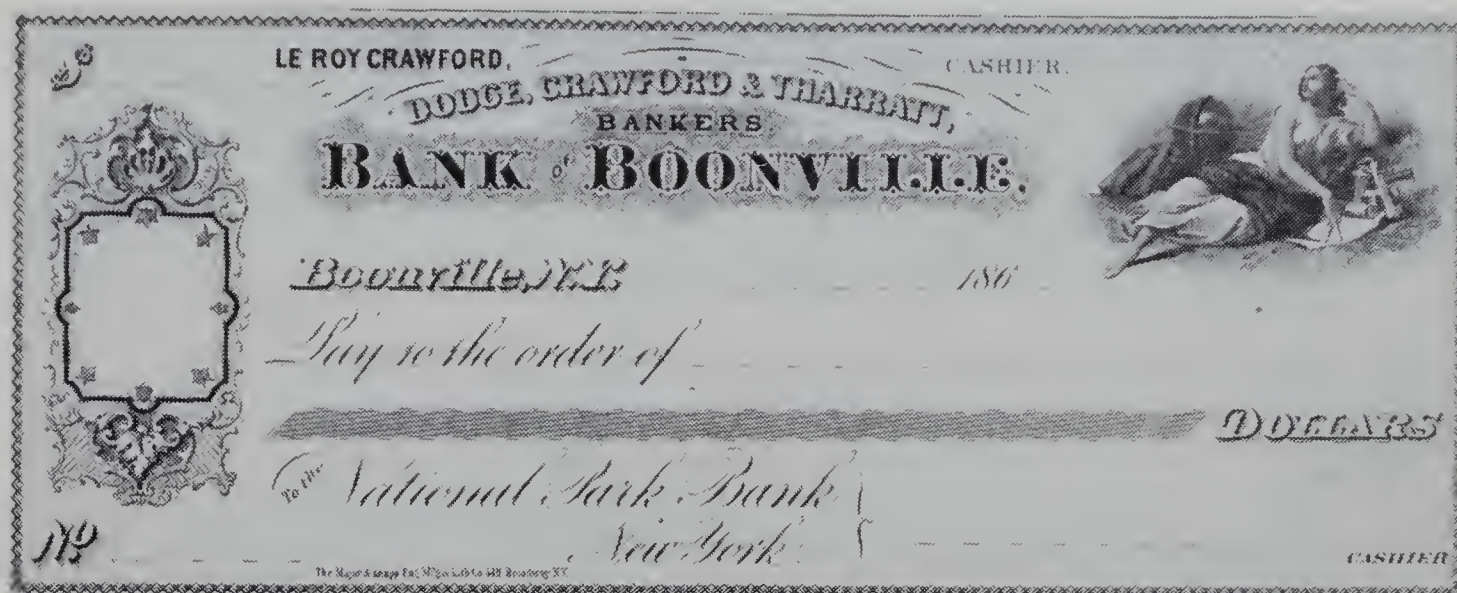 LE ROY CRAWFORD, CASHIER.
DODGE, CRAWFORD & THARRATT,
BANKERS
BANK OF BOONVILLE.
Boonville, N.Y. 186
Pay to the order of
DOLLARS
To the National Park Bank
New York
No CASHIER